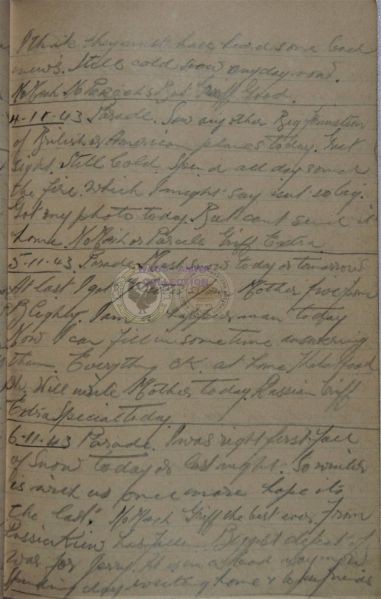 I think they must have had some bad
news. Still cold snow any day now.
No Mash No Parcels But Griff Good.
4-11-43 Parade. Saw another Big Formation
of British or American planes today. Just
right. Still Cold. all day round
the fire. Which I might say not so big.
Got my photo today. But can't send it
home. No Mash or Parcels. Griff Extra
5-11-43 Parade. snow today or tomorrow
At last I got Mother five from
Blighty. I am a happier man today
Now I can fill in some time answering
them. Everything OK. at home Thank God
Will write Mother today. Russian Griff
Extra Special today
6-11-43 Parade. I was right first fall
of Snow today or last night. So winter
is with us once more hope its
the last. No Mash Griff the best ever from
Russia Kiev has fallen Biggest defeat of
War for Jerry. It is in a good way now
day writing home & to friends